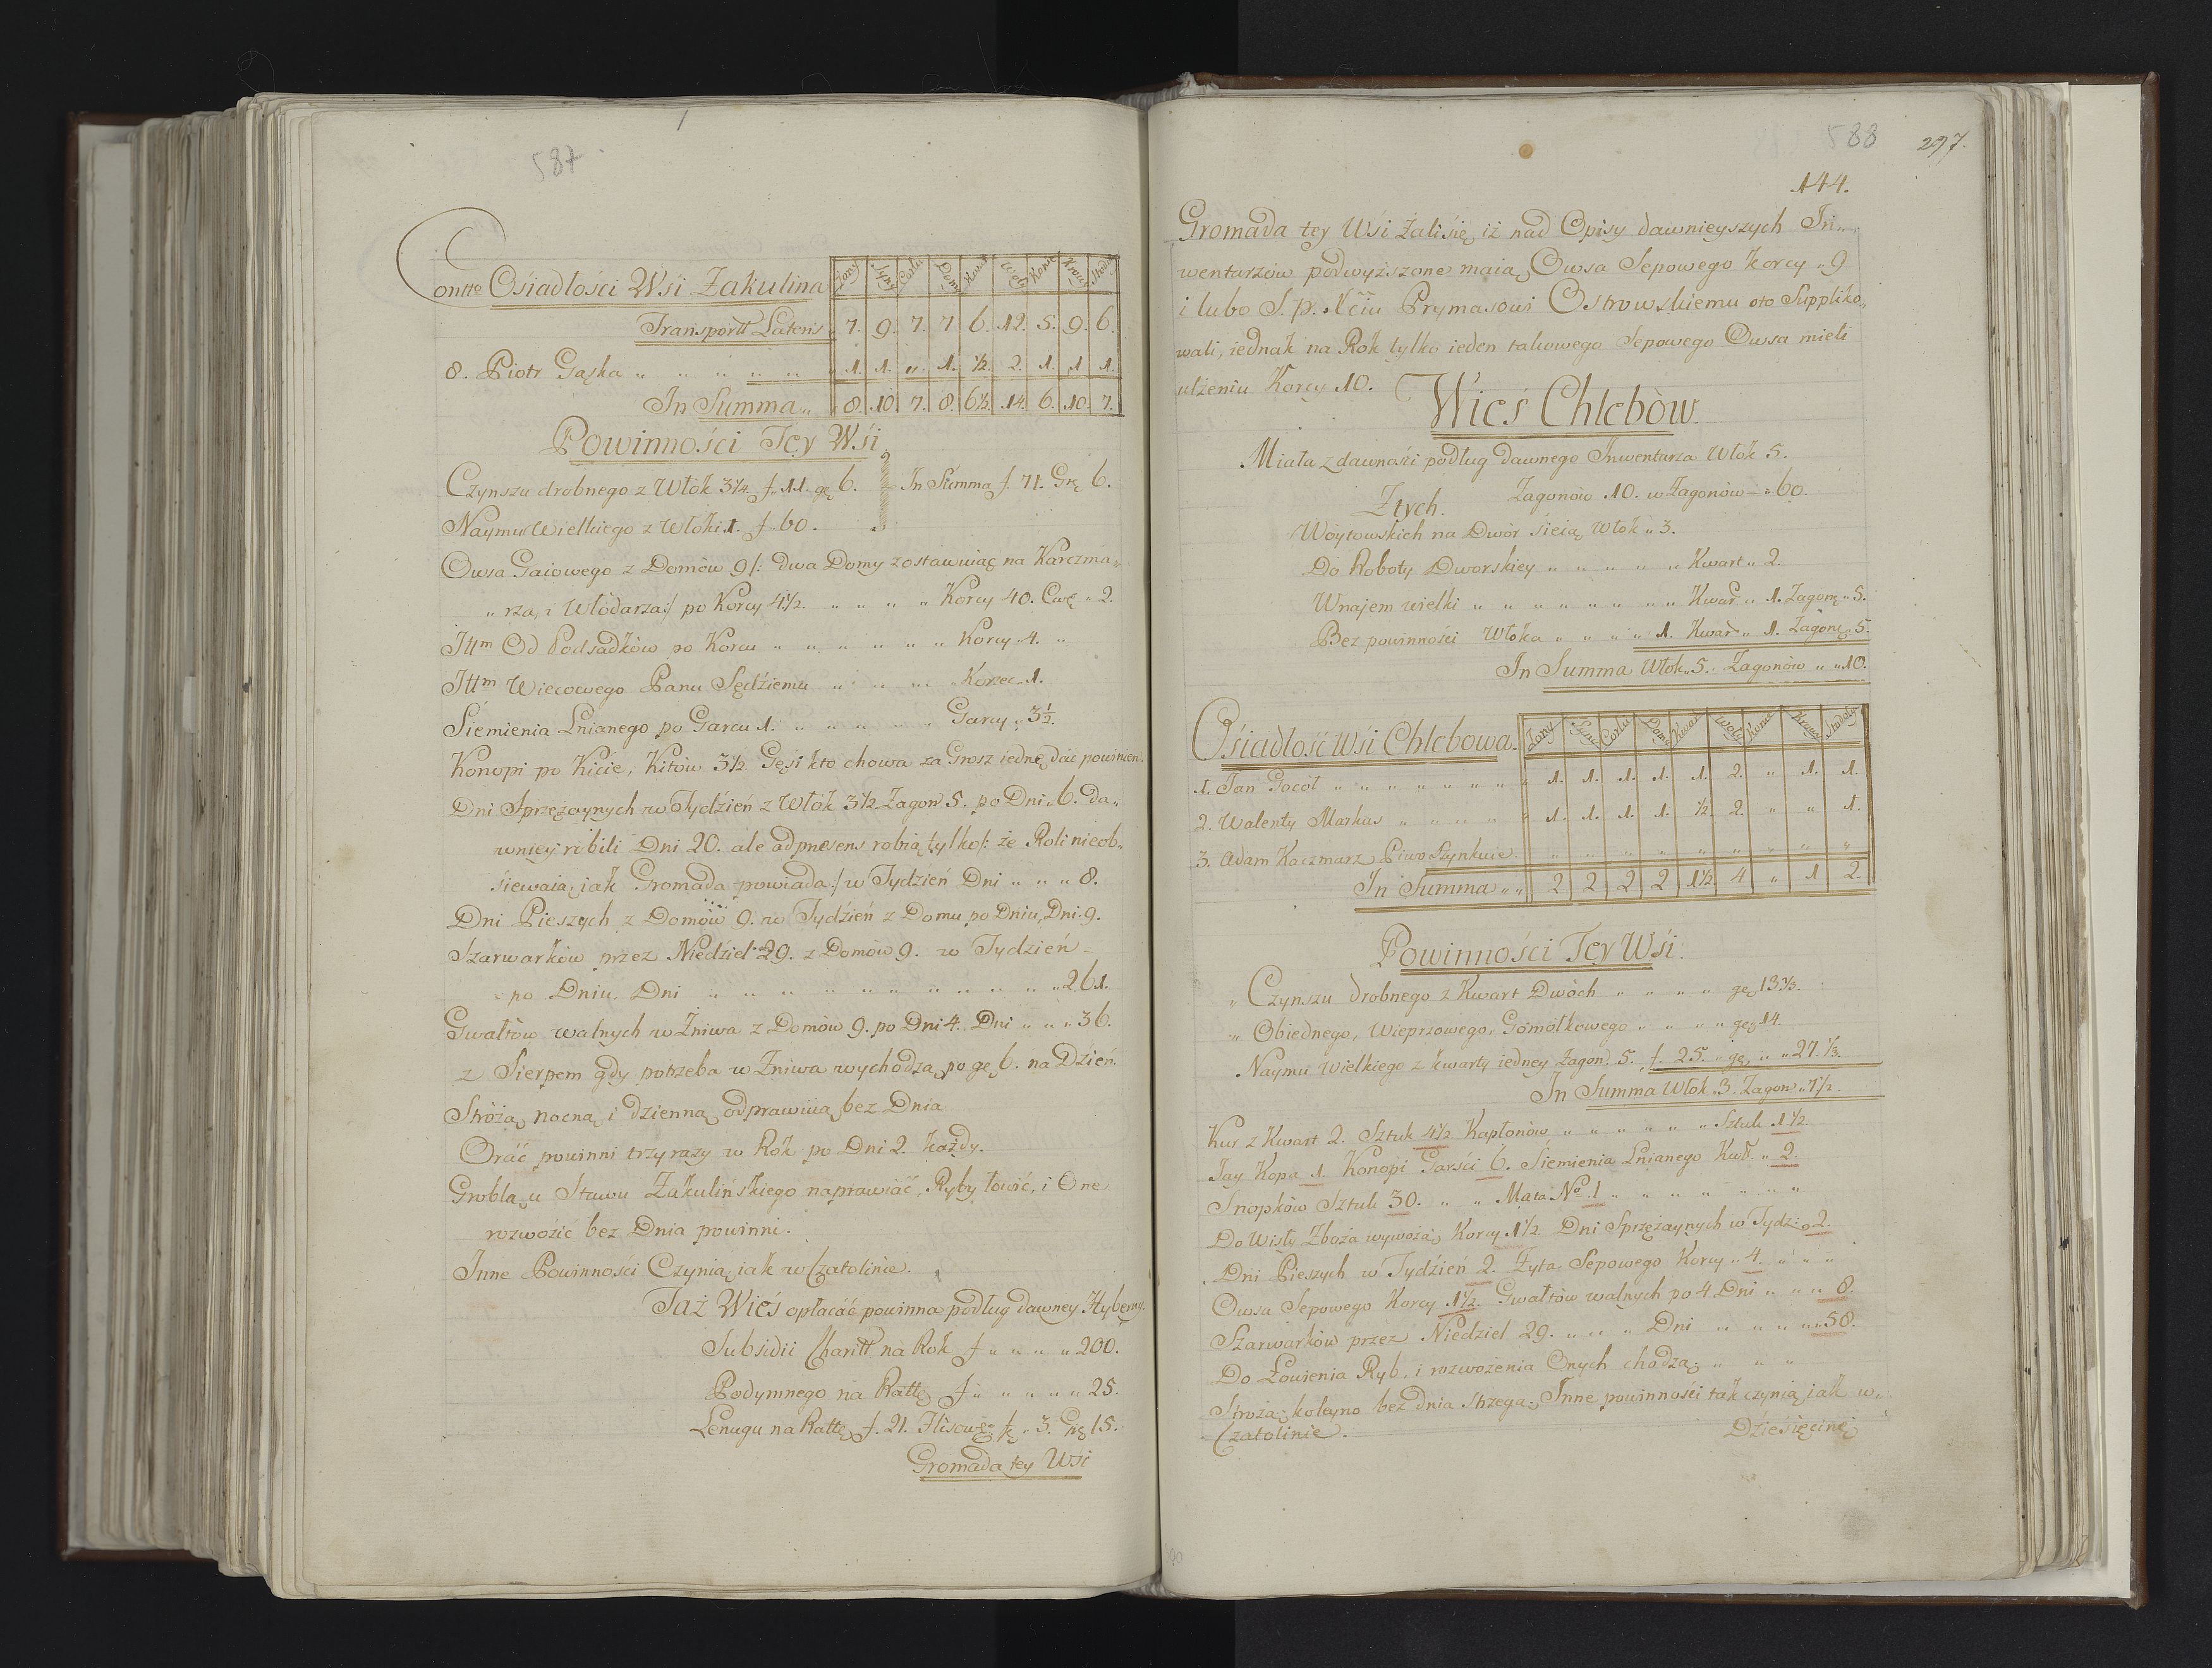 587
Contte Osiadłości Wsi Zakulina Żony Syny Córki Domy Kwart Woły Konie Krowy Stodoły
Transportt Lateris 7. 9. 7. 7 6. 12. 5. 9. 6.
8. Piotr Gąska 1. 1. „ 1. ½ 2. 1. 1 1.
In Summa 8. 10. 7. 8. 6½. 14. 6. 10. 7.
Powinności Tey Wsi
Czynszu drobnego z Włók 3¼ f. 11. gę 6. In Summa f. 71. Grę 6.
Naymu Wielkiego z Włóki 1. f. 60.
Owsa Gaiowego z Domów 9 /: dwa Domy zostawuiąc na Karczma„
„rza, i Włodarza:/ po Korcy 4½. „ „ „ „ Korcy 40. Cwę „ 2.
Ittm Od Podsadków po Korcu „ „ „ „ „ „ Korcy „ 4. „
Ittm Wiecowego Panu Sędziemu „ „ „ „ Korzec „ 1.
Siemienia Lnianego po Garcu 1. „ „ „ „ „ Garcy „ 3½.
Konopi po Kicie, Kitów 3½. Gęsi kto chowa za Grosz iednę dać powinien.
Dni Sprzężaynych w Tydzień z Włók 3½. Zagon. 5. po Dni „ 6. da„
wniey robili Dni 20. ale ad presens robią tylko /: że Roli nieob„
siewaią, iak Gromada powiada :/ w Tydzień Dni „ „ „ 8.
Dni Pieszych z Domów 9. w Tydzień z Domu po Dniu, Dni. 9.
Szarwarków przez Niedziel 29. z Domów 9. w Tydzień
po Dniu, Dni „ „ „ „ „ „ „ „ „ „ „ 261.
Gwałtów walnych w Żniwa z Domów 9. po Dni 4. Dni „ „ „ 36.
z Sierpem gdy potrzeba w Żniwa wychodzą po gę 6. na Dzień.
Stróżą nocną i dzienną odprawuią bez Dnia
Orać powinni trzy razy w Rok po Dni 2. każdy.
Groblą u Stawu Zakulińskiego naprawiać, Ryby łowić, i One
rozwozić bez Dnia powinni.
Inne Powinności Czynią iak w Czatolinie.
Taż Wieś opłacać powinna podług dawney Hyberny.
Subsidii Charitt. na Rok f „ „ „ „ 200.
Podymnego na Rattę f „ „ „ „ „ 25.
Lenugu na Rattę f. 21. „ 3. Grę 15.
Gromada tey Wsi
588 297.
144.
Gromada tey Wsi żali się iż nad Opisy dawnieyszych In„
wentarzów podwyższone maią Owsa Sepowego korcy „ 9
i lubo S. p. Xciu Prymasowi Ostrowskiemu oto Suppliko„
wali, iednak na Rok tylko ieden takowego Sepowego Owsa mieli
ulżeniu Korcy 10.
Wieś Chlebów.
Miała z dawności podług dawnego Inwentarza Włók 5.
Zagonów 10. w Zagonów „ 60.
Z tych.
Wóytowskich na Dwór sieią Włok „ 3.
Do Roboty Dworskiey „ „ „ „ „ Kwart „ 2.
W najem wielki „ „ „ „ „ „ „ „ Kwar „ 1. Zagonę „ 5.
Bez powinności Włóka „ „ „ „ 1. Kwar „ 1. Zagonę „ 5.
In Summa Włok „ 5. Zagonów „ „ 10.
Osiadłość Wsi Chlebowa. Żony Syny Córki Domy Kwart Woły Konie Krowy Stodoły
1. Jan Gocół „ „ „ „ „ „ „ 1. 1. 1. 1. 1. 2. „ 1. 1.
2. Walenty Markus „ „ „ „ „ 1. 1. 1. 1. ½. 2. „ „ 1.
3. Adam Kaczmarz Piwo Szynkuie „ „ „ „ „ „ „ „ „
In Summa „ „ 2 2 2 2 1½ 4 „ 1 2.
Powinności Tey Wsi.
„ Czynszu drobnego z Kwart Dwóch „ „ „ „ gę 13⅓.
„ Obiednego, Wieprzowego, Gomółkowego „ „ „ „ gę 14.
Naymu Wielkiego z kwarty iedney Zagon. 5. f. 25. „ gę „ „ 27.⅓.
In Summa Włok „ 3. Zagon „ 7½.
Kur z Kwart 2. Sztuk 4½. Kapłonów „ „ „ „ „ „ Sztuk 1½.
Jay Kopa 1. Konopi Garści 6. Siemienia Lnianego Kwtt. „ 2.
Snopków Sztuk 30. „ „ Mata No. 1 „ „ „ „ „ „ „
Do Wisły Zboża wywożą Korcy 1½. Dni Sprzężaynych w Tydz: „ 2.
Dni Pieszych w Tydzień 2. Żyta Sepowego Korcy „ 4. „ „ „
Owsa Sepowego Korcy 1½. Gwałtów walnych po 4 Dni „ „ „ 8.
Szarwarków przez Niedziel 29. „ „ „ Dni „ „ „ „ „ 58.
Do Łowienia Ryb, i rozwożenia Onych chodzą „ „ „
Stróżą koleyno bez dnia strzegą. Inne powinności tak czynią iak w„
Czatolinie.
Dziesięcinę
300